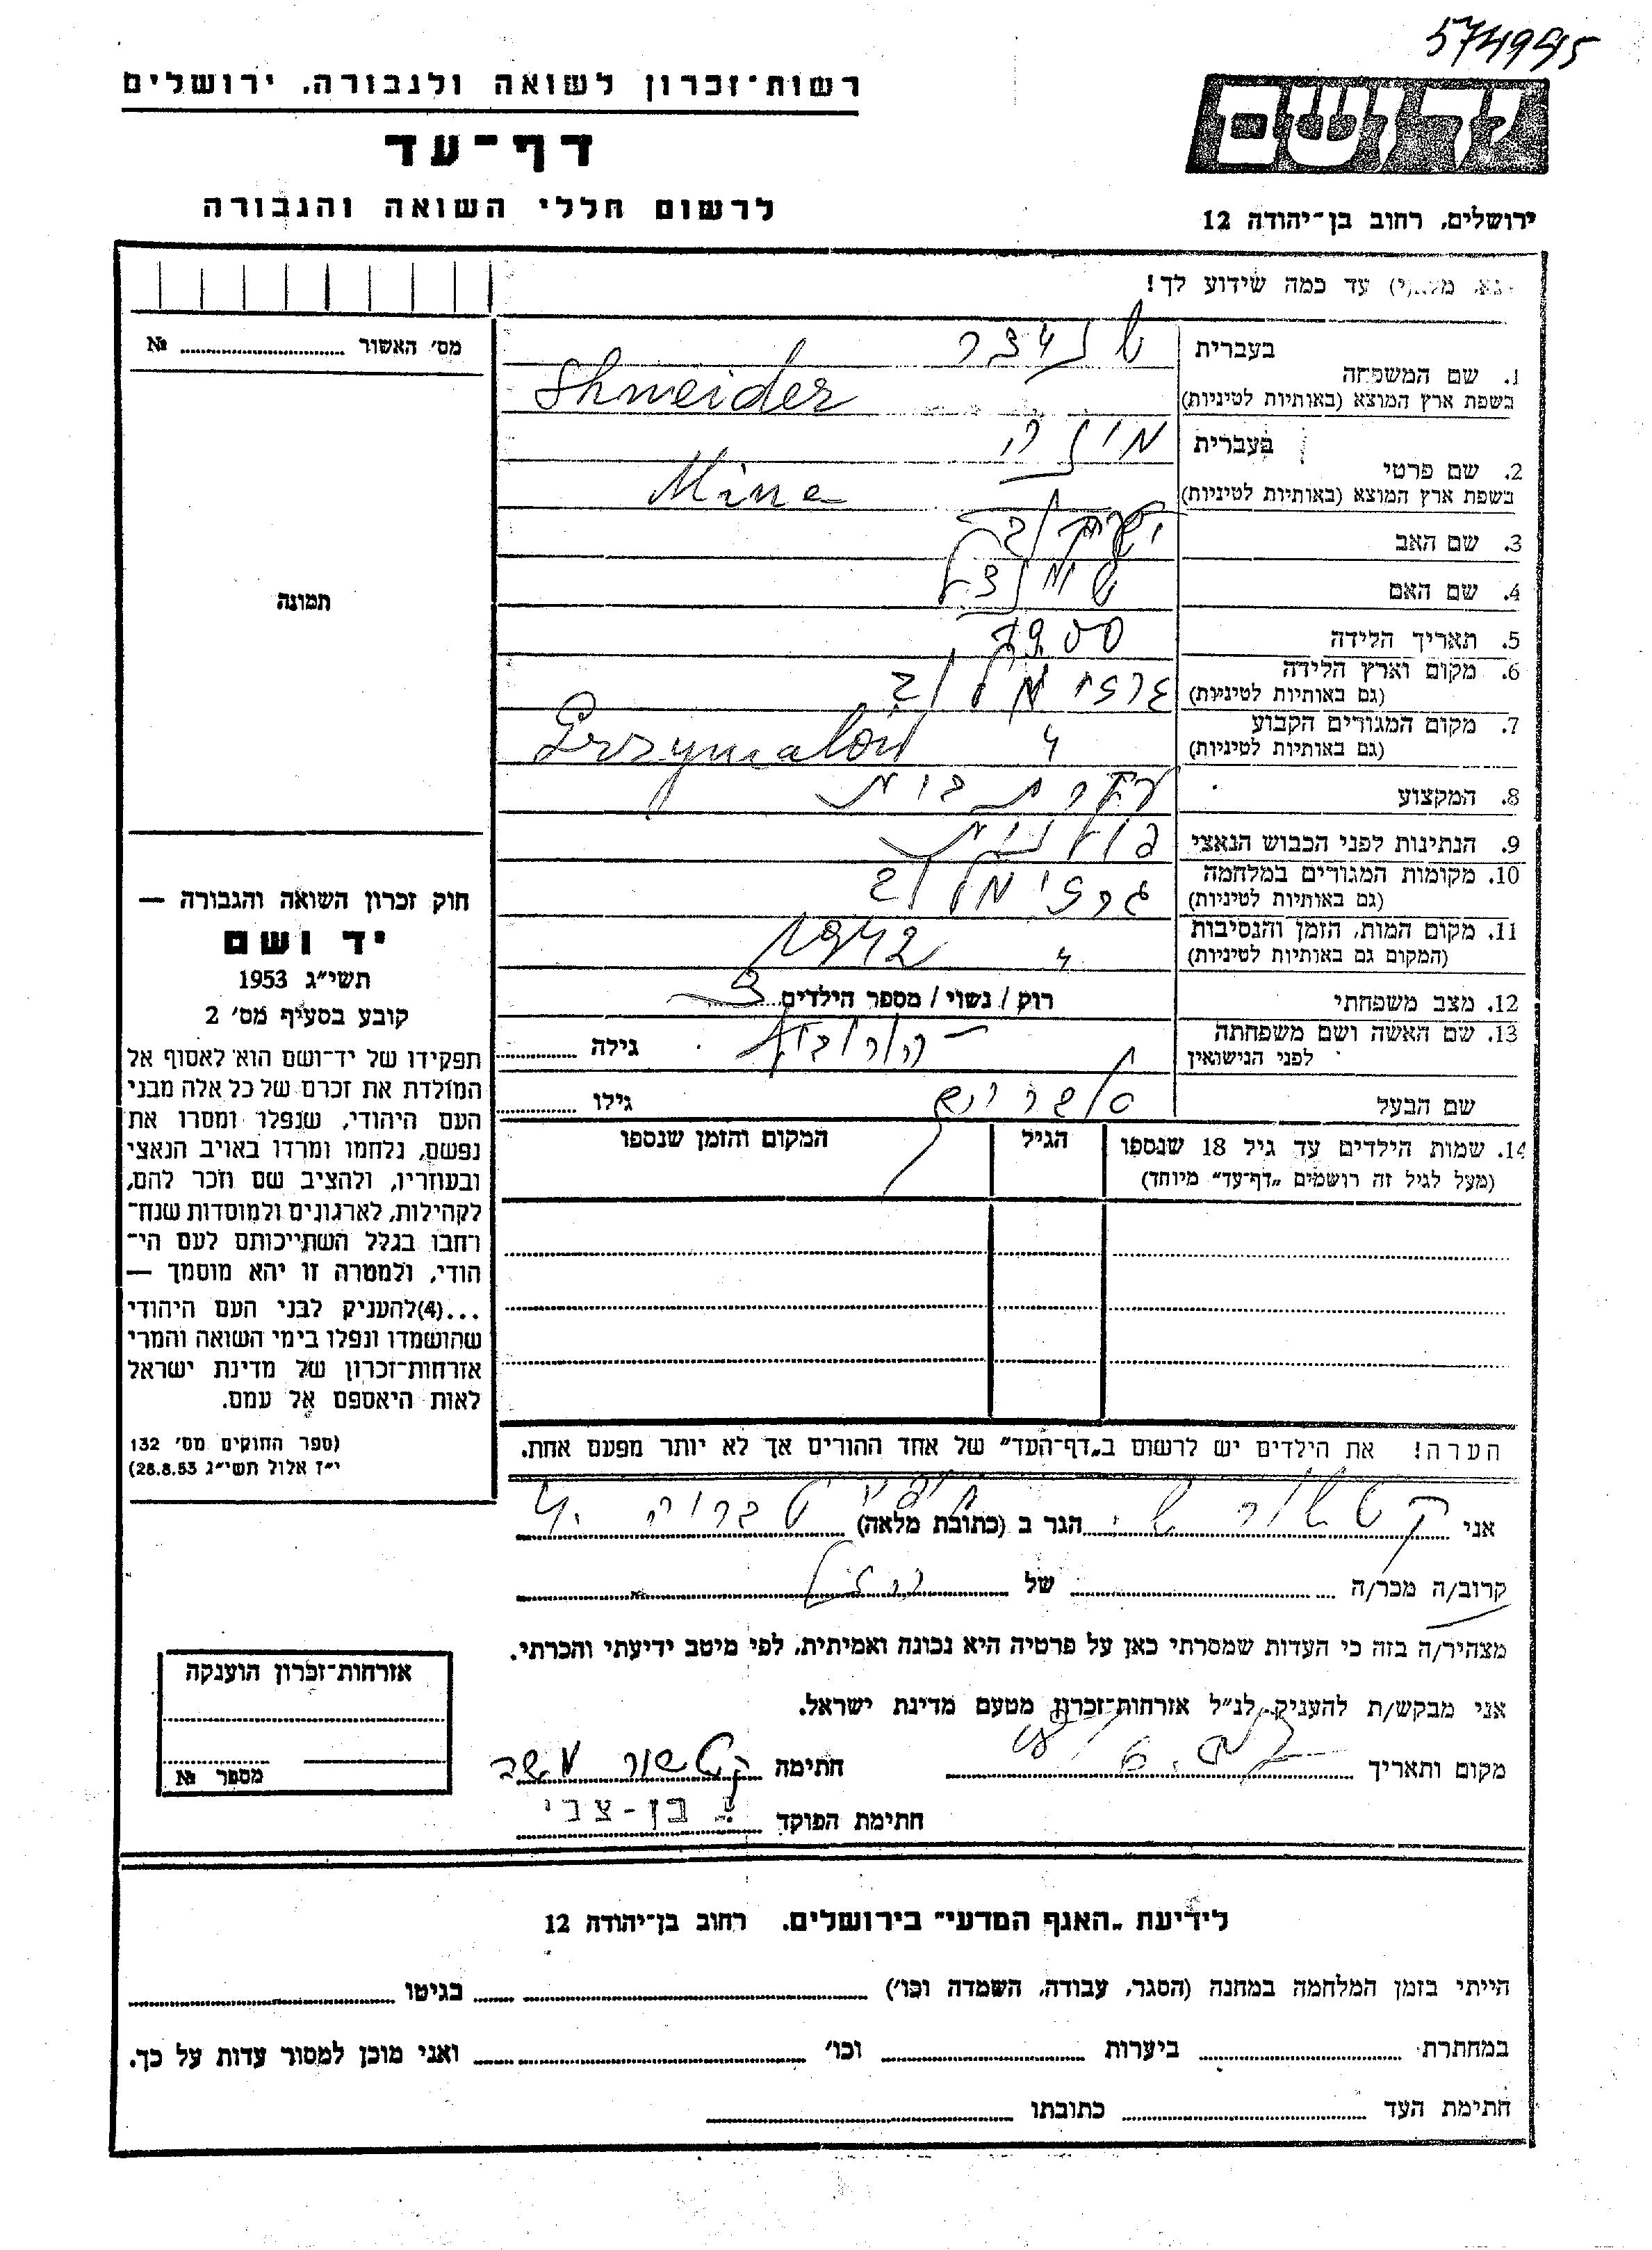 5749945
רשות־זכרון לשואה ולגבורה, ירושלים
דף־עד
לרשום חללי השואה והגבורה
ידושם
ירושלים, רחוב בן־יהודה 12
נא מלא(י) עד כמה שידוע לך!
מס׳ האשור № 
בעברית שנידר
1. שם המשפחה
בשפת ארץ המוצא (באותיות לטיניות) Shneider
בעברית מינה
2. שם פרטי
בשפת ארץ המוצא (באותיות לטיניות) Mina
3. שם האב
4. שם האם
5. תאריך הלידה 1900
6. מקום וארץ הלידה גרזימלוב
(גם באותיות לטיניות)
7. מקום המגורים הקבוע "
(גם באותיות לטיניות) Grzymalów
8. המקצוע עקרת בית
9. הנתינות לפני הכבוש הנאצי פולנית
10. מקומות המגורים במלחמה גרזימלוב
(גם באותיות לטיניות)
11. מקום המות, הזמן והנסיבות " 1942
(המקום גם באותיות לטיניות)
12. מצב משפחתי רוק / נשוי / מספר הילדים
13. שם האשה ושם משפחתה
לפני הנישואין גילה
שם הבעל גילו
14. שמות הילדים עד גיל 18 שנספו
(מעל לגיל זה רושמים „דף־עד” מיוחד)
הגיל
המקום והזמן שנספו
תמונה
חוק זכרון השואה והגבורה —
יד ושם
תשי״ג 1953
קובע בסעיף מס׳ 2
תפקידו של יד־ושם הוא לאסוף אל
המולדת את זכרם של כל אלה מבני
העם היהודי, שנפלו ומסרו את
נפשם, נלחמו ומרדו באויב הנאצי
ובעוזריו, ולהציב שם וזכר להם,
לקהילות, לארגונים ולמוסדות שנח־
רחבו בגלל השתייכותם לעם הי־
הודי, ולמטרה זו יהא מוסמך —
...(4)להעניק לבני העם היהודי
שהושמדו ונפלו בימי השואה והמרי
אזרחות־זכרון של מדינת ישראל
לאות היאספם אל עמם.
(ספר החוקים מס׳ 132
י״ז אלול תשי״ג 28.8.53)
הערה! את הילדים יש לרשום ב„דף־העד” של אחד ההורים אך לא יותר מפעם אחת.
אני קטשור הגר ב (כתובת מלאה) חיפה טבריה
קרוב/ה מכר/ה של
מצהיר/ה בזה כי העדות שמסרתי כאן על פרטיה היא נכונה ואמיתית, לפי מיטב ידיעתי והכרתי.
אני מבקש/ת להעניק לנ״ל אזרחות־זכרון מטעם מדינת ישראל.
מקום ותאריך חתימה קטשור
חתימת הפוקד י. בן-צבי
אזרחות־זכרון הוענקה
מספר №
לידיעת „האגף המדעי” בירושלים, רחוב בן־יהודה 12
הייתי בזמן המלחמה במחנה (הסגר, עבודה, השמדה וכו׳) בגיטו
במחתרת ביערות וכו׳ ואני מוכן למסור עדות על כך.
חתימת העד כתובתו